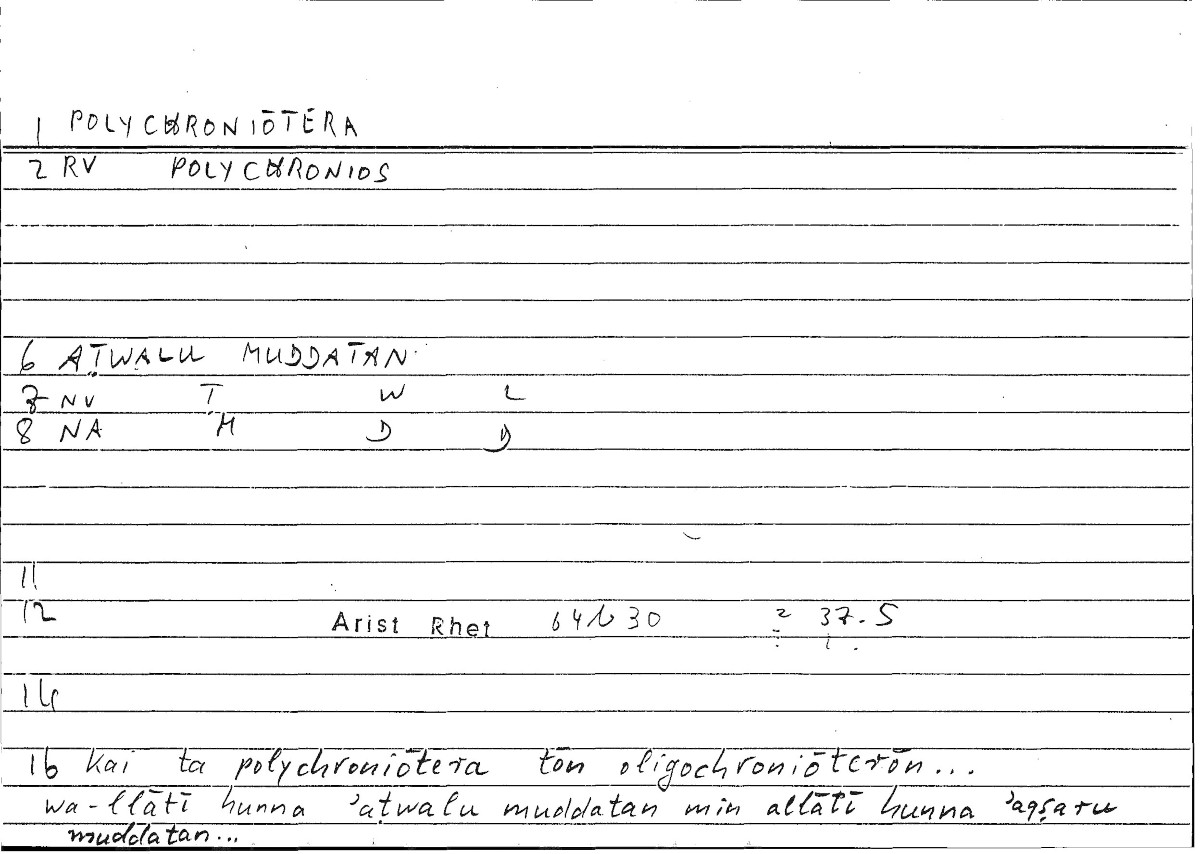 1 POLYCHRONIŌTERA
2 RV POLYCHRONIOS
6 AṬWALU MUDDATAN
7 NV Ṭ W L
8 NA M D D
11
12 Arist Rhet 64b30 2 37.5
14
16 Kai ta polychroniōtera tōn oligochroniōterōn...
wa-llātī hunna ʾaṭwalu muddatan min allātī hunna ʾaqṣaru
muddatan...